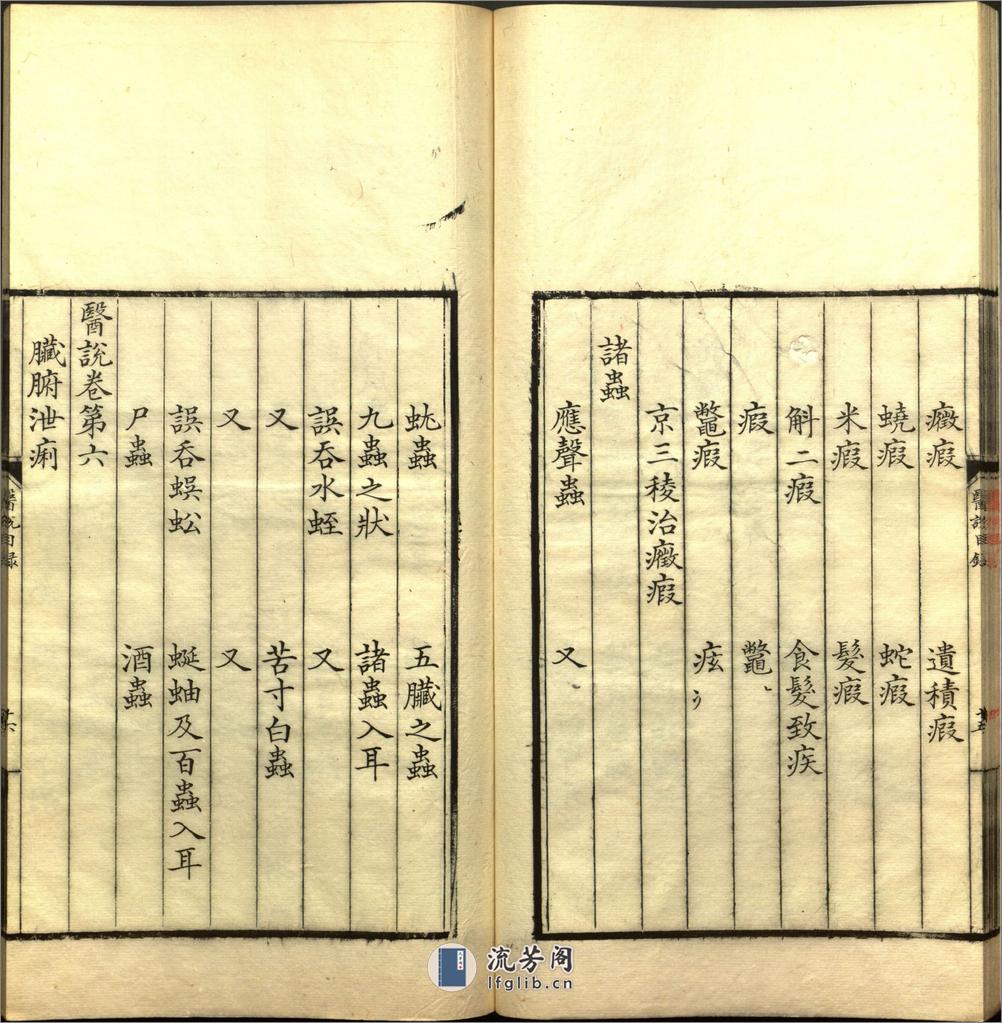 癥瘕 遺積瘕
蟯瘕 蛇瘕
米瘕 髮瘕
斛二瘕 食髮致疾
瘕 鼈
鼈瘕 痃
京三稜治癥瘕
諸蟲
應聲蟲 又
醫說目錄
蚘蟲 五臟之蟲
九蟲之狀 諸蟲入耳
誤吞水蛭 又
又 苦寸白蟲
又 又
誤吞蜈蚣 蜒蚰及百蟲入耳
尸蟲 酒蟲
醫說卷第六
臟腑泄痢
醫說目錄
十六
流芳阁
lfglib.cn